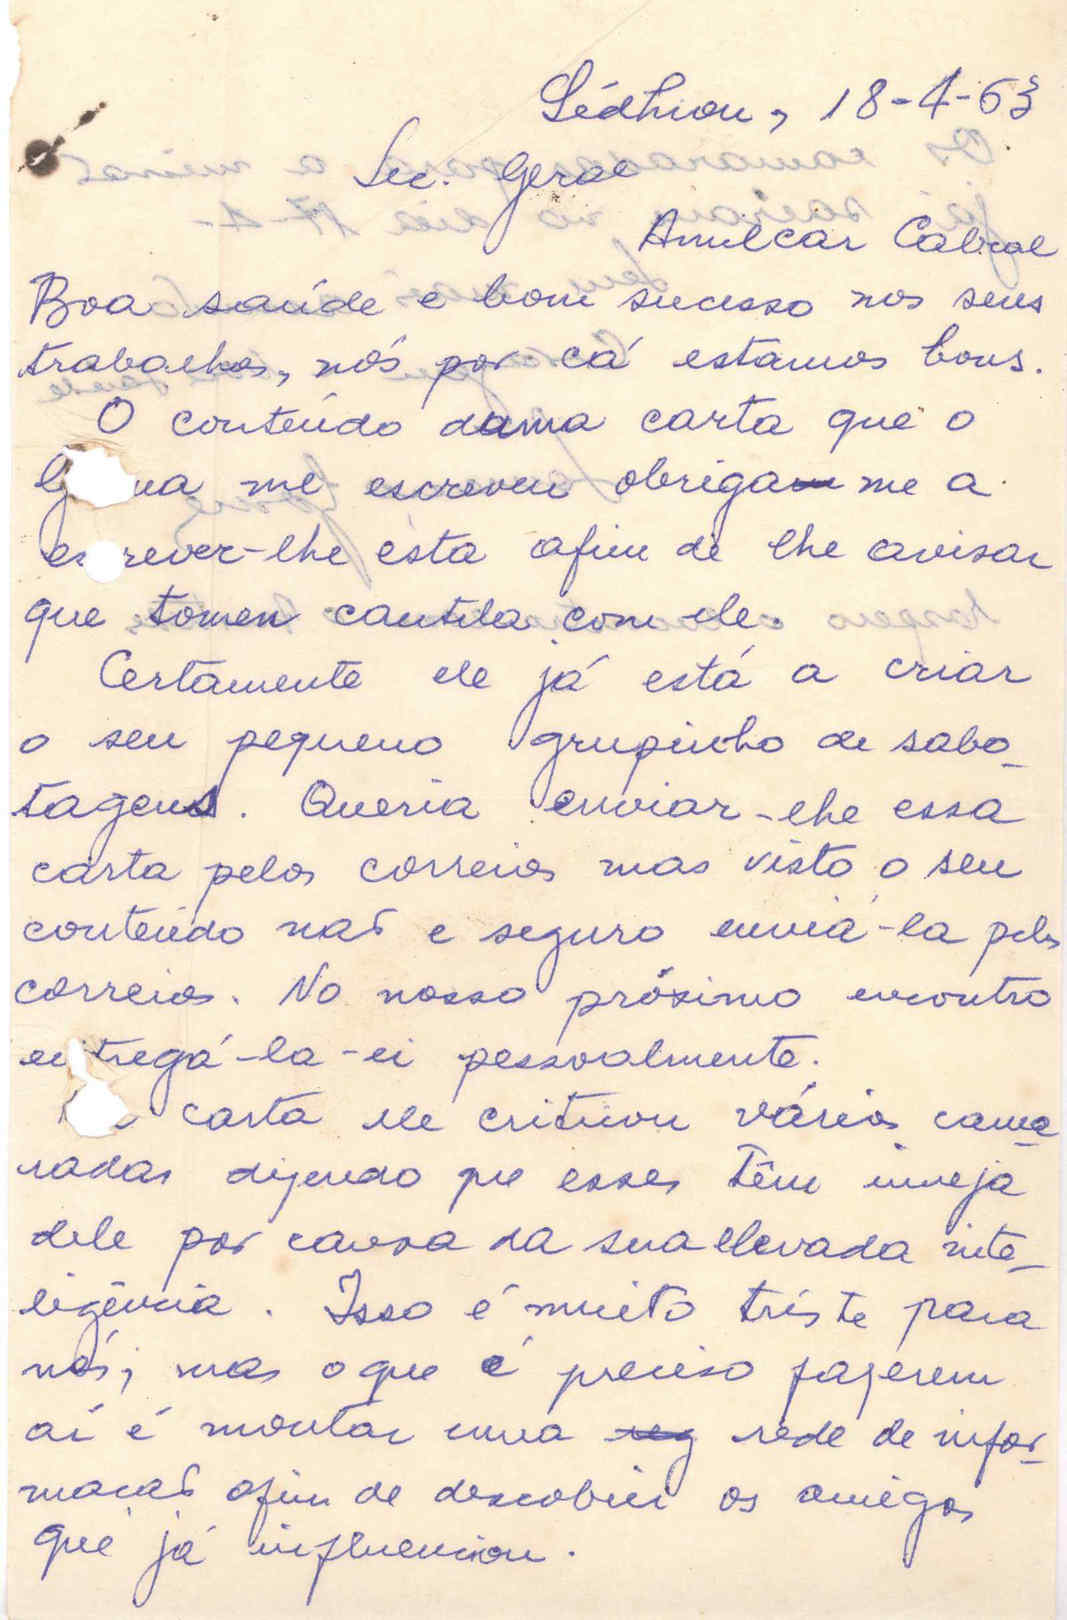 Sédhiou, 18-4-63
Sec. Geral
Amilcar Cabral
Boa saúde e bom sucesso nos seus
trabalhos, nós por cá estamos bons.
O conteúdo duma carta que o
me escreveu obriga me a
escrever-lhe esta afim de lhe avisar
que tomem cautela com ele.
Certamente ele já está a criar
o seu pequeno grupinho de sabo-
tagens. Queria enviar-lhe essa
carta pelos correios mas visto o seu
conteúdo não e seguro enviá-la pelos
correios. No nosso próximo encontro
entregá-la-ei pessoalmente.
carta ele criticou vários cama-
radas dizendo que esses têm inveja
dele por causa da sua elevada inte-
ligência. Isso é muito triste para
nós, mas o que é preciso fazerem
aí é montar uma rede de infor-
mação afim de descobrir os amigos
que já influenciou.